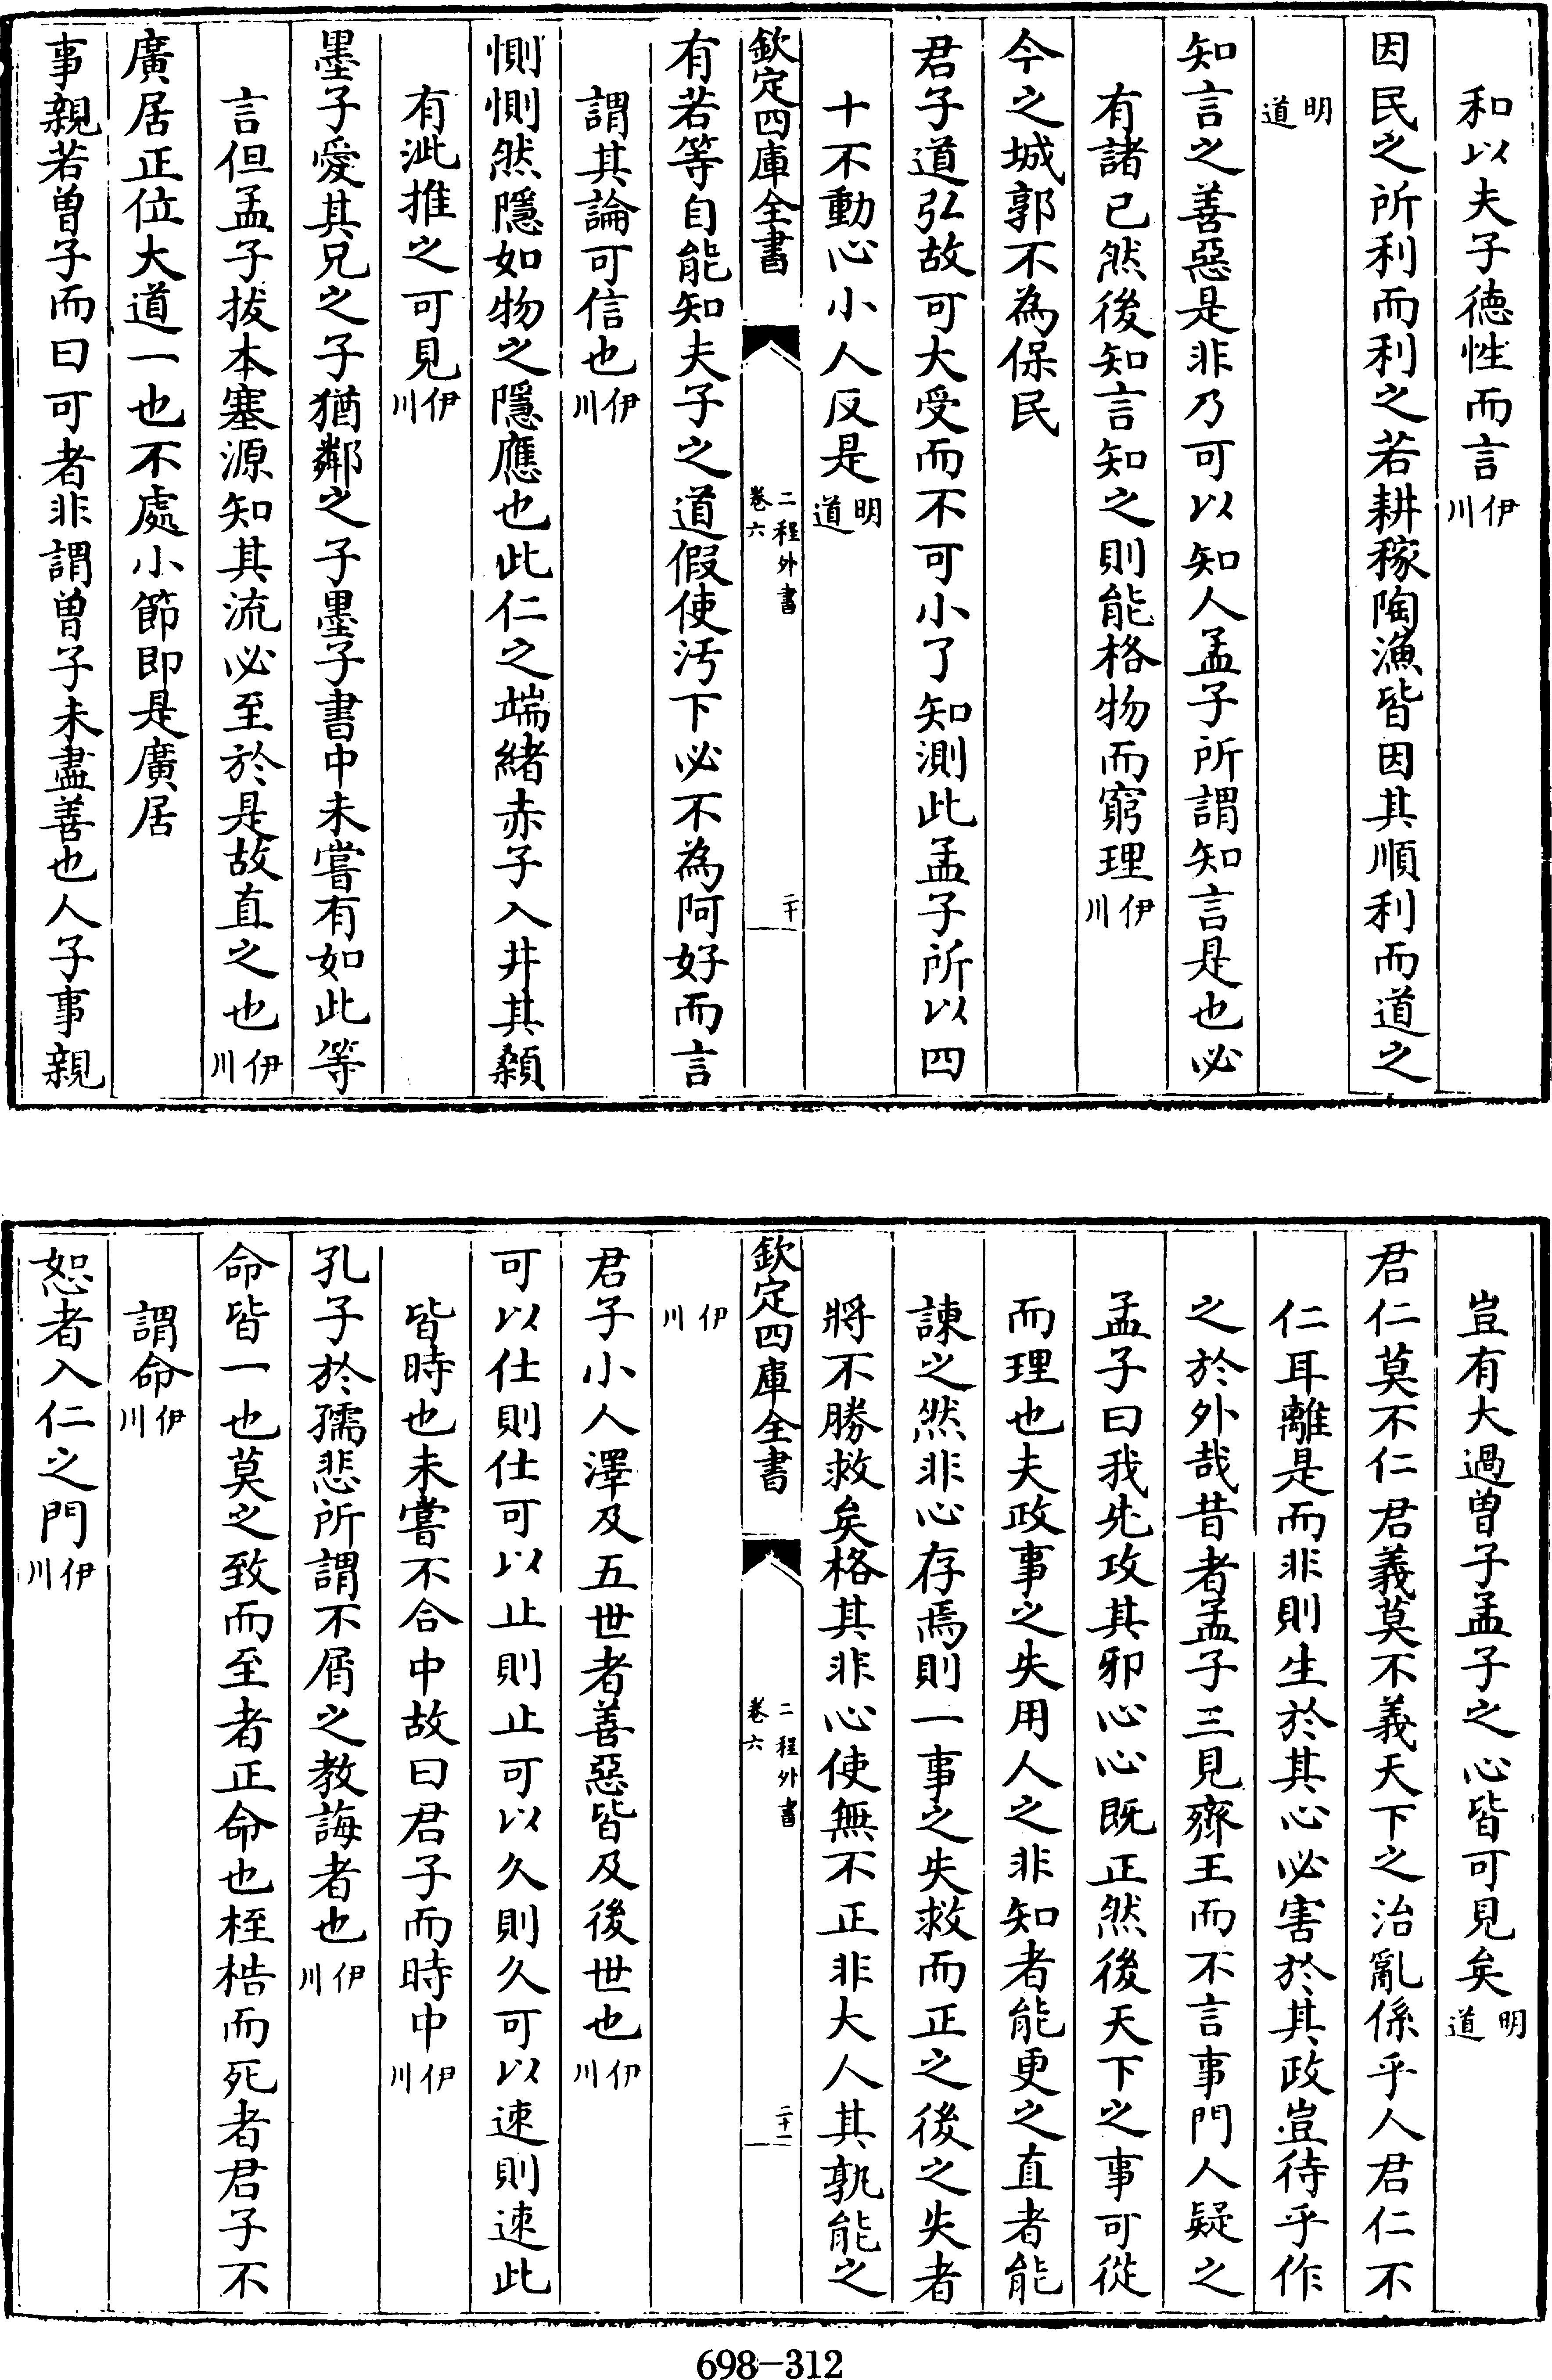 和以夫子德性而言伊川
因民之所利而利之若耕稼陶漁皆因其順利而道之
明道
知言之善惡是非乃可以知人孟子所謂知言是也必
有諸已然後知言知之則能格物而窮理伊川
今之城郭不為保民
君子道弘故可大受而不可小了知測此孟子所以四
十不動心小人反是明道
欽定四庫全書
二程外書
卷六
二十
有若等自能知夫子之道假使汚下必不為阿好而言
謂其論可信也伊川
惻惻然隱如物之隱應也此仁之端緒赤子入井其顙
有泚推之可見伊川
墨子愛其兄之子猶鄰之子墨子書中未嘗有如此等
言但孟子拔本塞源知其流必至於是故直之也伊川
廣居正位大道一也不處小節即是廣居
事親若曾子而曰可者非謂曾子未盡善也人子事親
豈有大過曾子孟子之心皆可見矣明道
君仁莫不仁君義莫不義天下之治亂係乎人君仁不
仁耳離是而非則生於其心必害於其政豈待乎作
之於外哉昔者孟子三見齊王而不言事門人疑之
孟子曰我先攻其邪心心既正然後天下之事可從
而理也夫政事之失用人之非知者能更之直者能
諫之然非心存焉則一事之失救而正之後之失者
將不勝救矣格其非心使無不正非大人其孰能之
欽定四庫全書
二程外書
卷六
二十一
伊川
君子小人澤及五世者善惡皆及後世也伊川
可以仕則仕可以止則止可以久則久可以速則速此
皆時也未嘗不合中故曰君子而時中伊川
孔子於孺悲所謂不屑之教誨者也伊川
命皆一也莫之致而至者正命也桎梏而死者君子不
謂命伊川
恕者入仁之門伊川
698-312